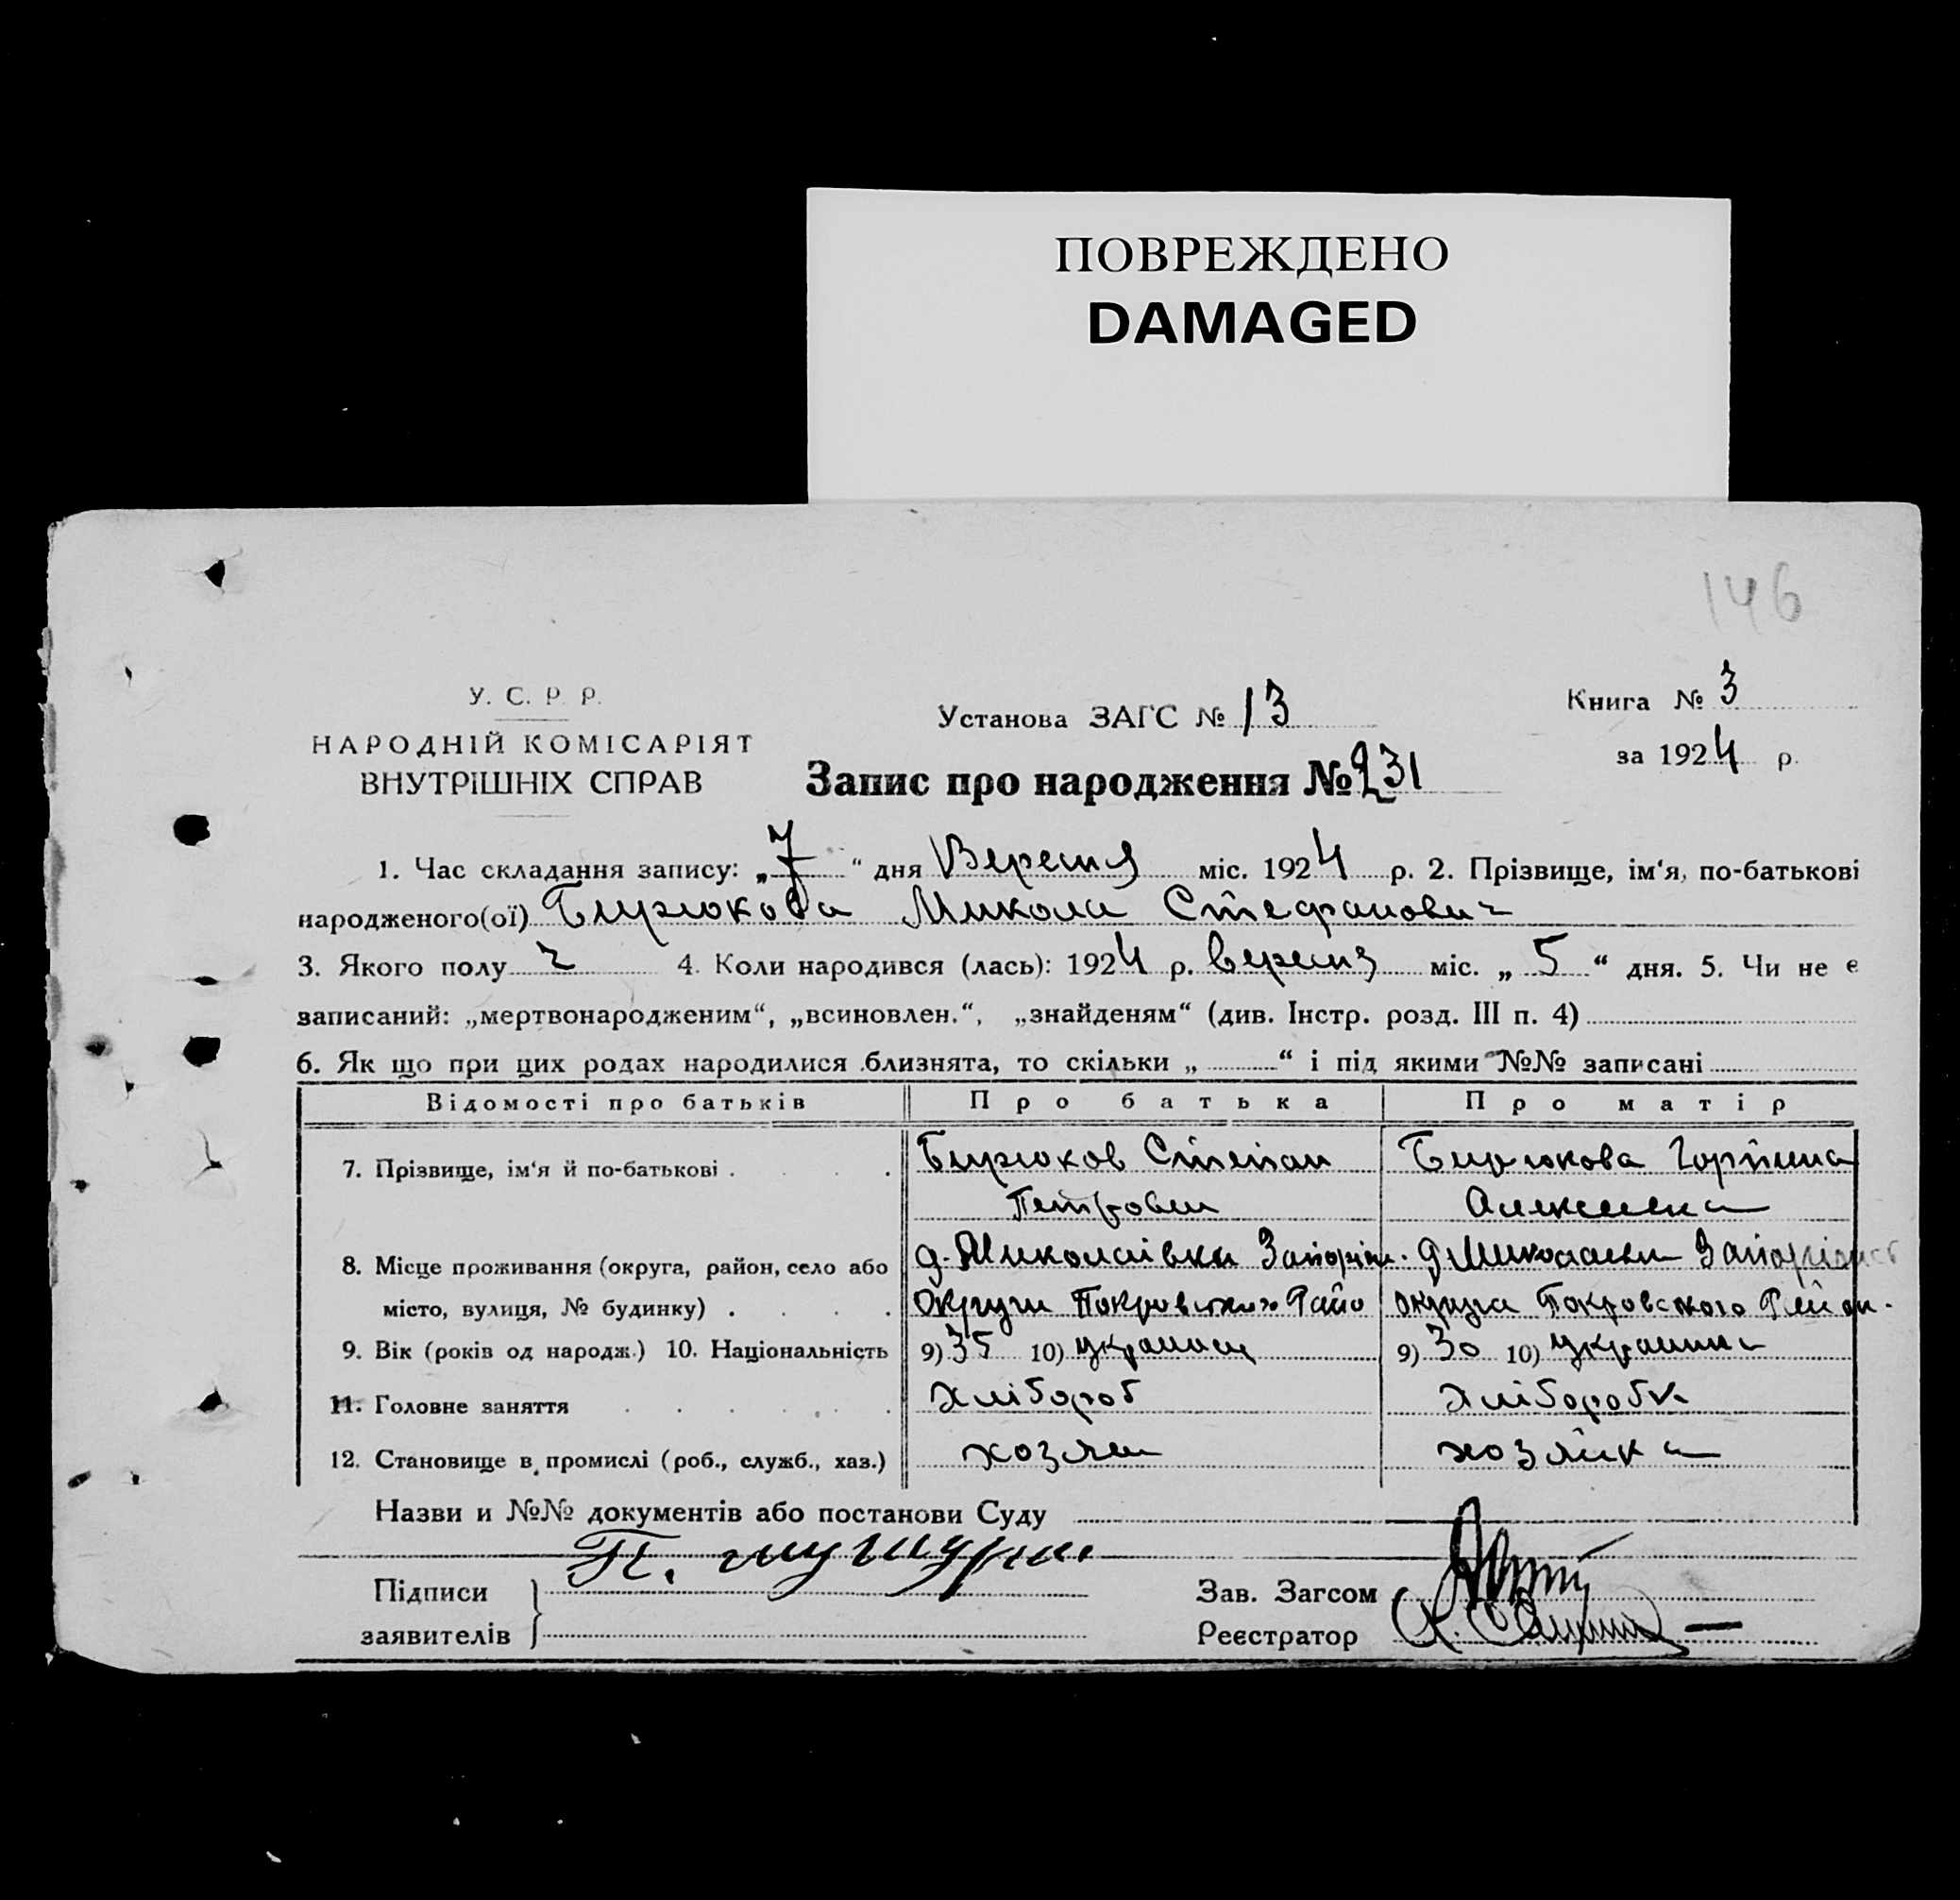 ПОВРЕЖДЕНО
DAMAGED
146
У. С. Р. Р.
НАРОДНІЙ КОМІСАРІЯТ
ВНУТРІШНІХ СПРАВ
Установа ЗАГС № 13
Книга № 3
за 1924 р.
Запис про народження № 231
1. Час складання запису: „7“ дня Вересня міс. 1924 р. 2. Прізвище, ім‘я, по-батькові
народженого(ої) Бирюкова Микола Стефанович
3. Якого полу ч 4. Коли народився (лась): 1924 р. вересня міс. „5“ дня. 5. Чи не є
записаний: „мертвонародженим“, „всиновлен.“, „знайденям“ (див. Інстр. розд. III п. 4)
6. Як що при цих родах народилися близнята, то скільки „ “ і під якими №№ записані
Відомості про батьків Про батька Про матір
7. Прізвище, ім‘я й по-батькові Бирюков Степан Бирюкова Горпина
Петрович Алексеевна
8. Місце проживання (округа, район, село або д. Миколаівка Запоріж. д. Запоріжс
місто, вулиця, № будинку) Округи Покровского Райо округа Покровского Район.
9. Вік (років од народж.) 10. Національність 9) 35 10) украинец 9) 30 10) украинка
11. Головне заняття хлібороб хліборобка
12. Становище в промислі (роб., служб., хаз.) хозяин хозяйка
Назви и №№ документів або постанови Суду
П.
Підписи
заявителів
Зав. Загсом
Реєстратор